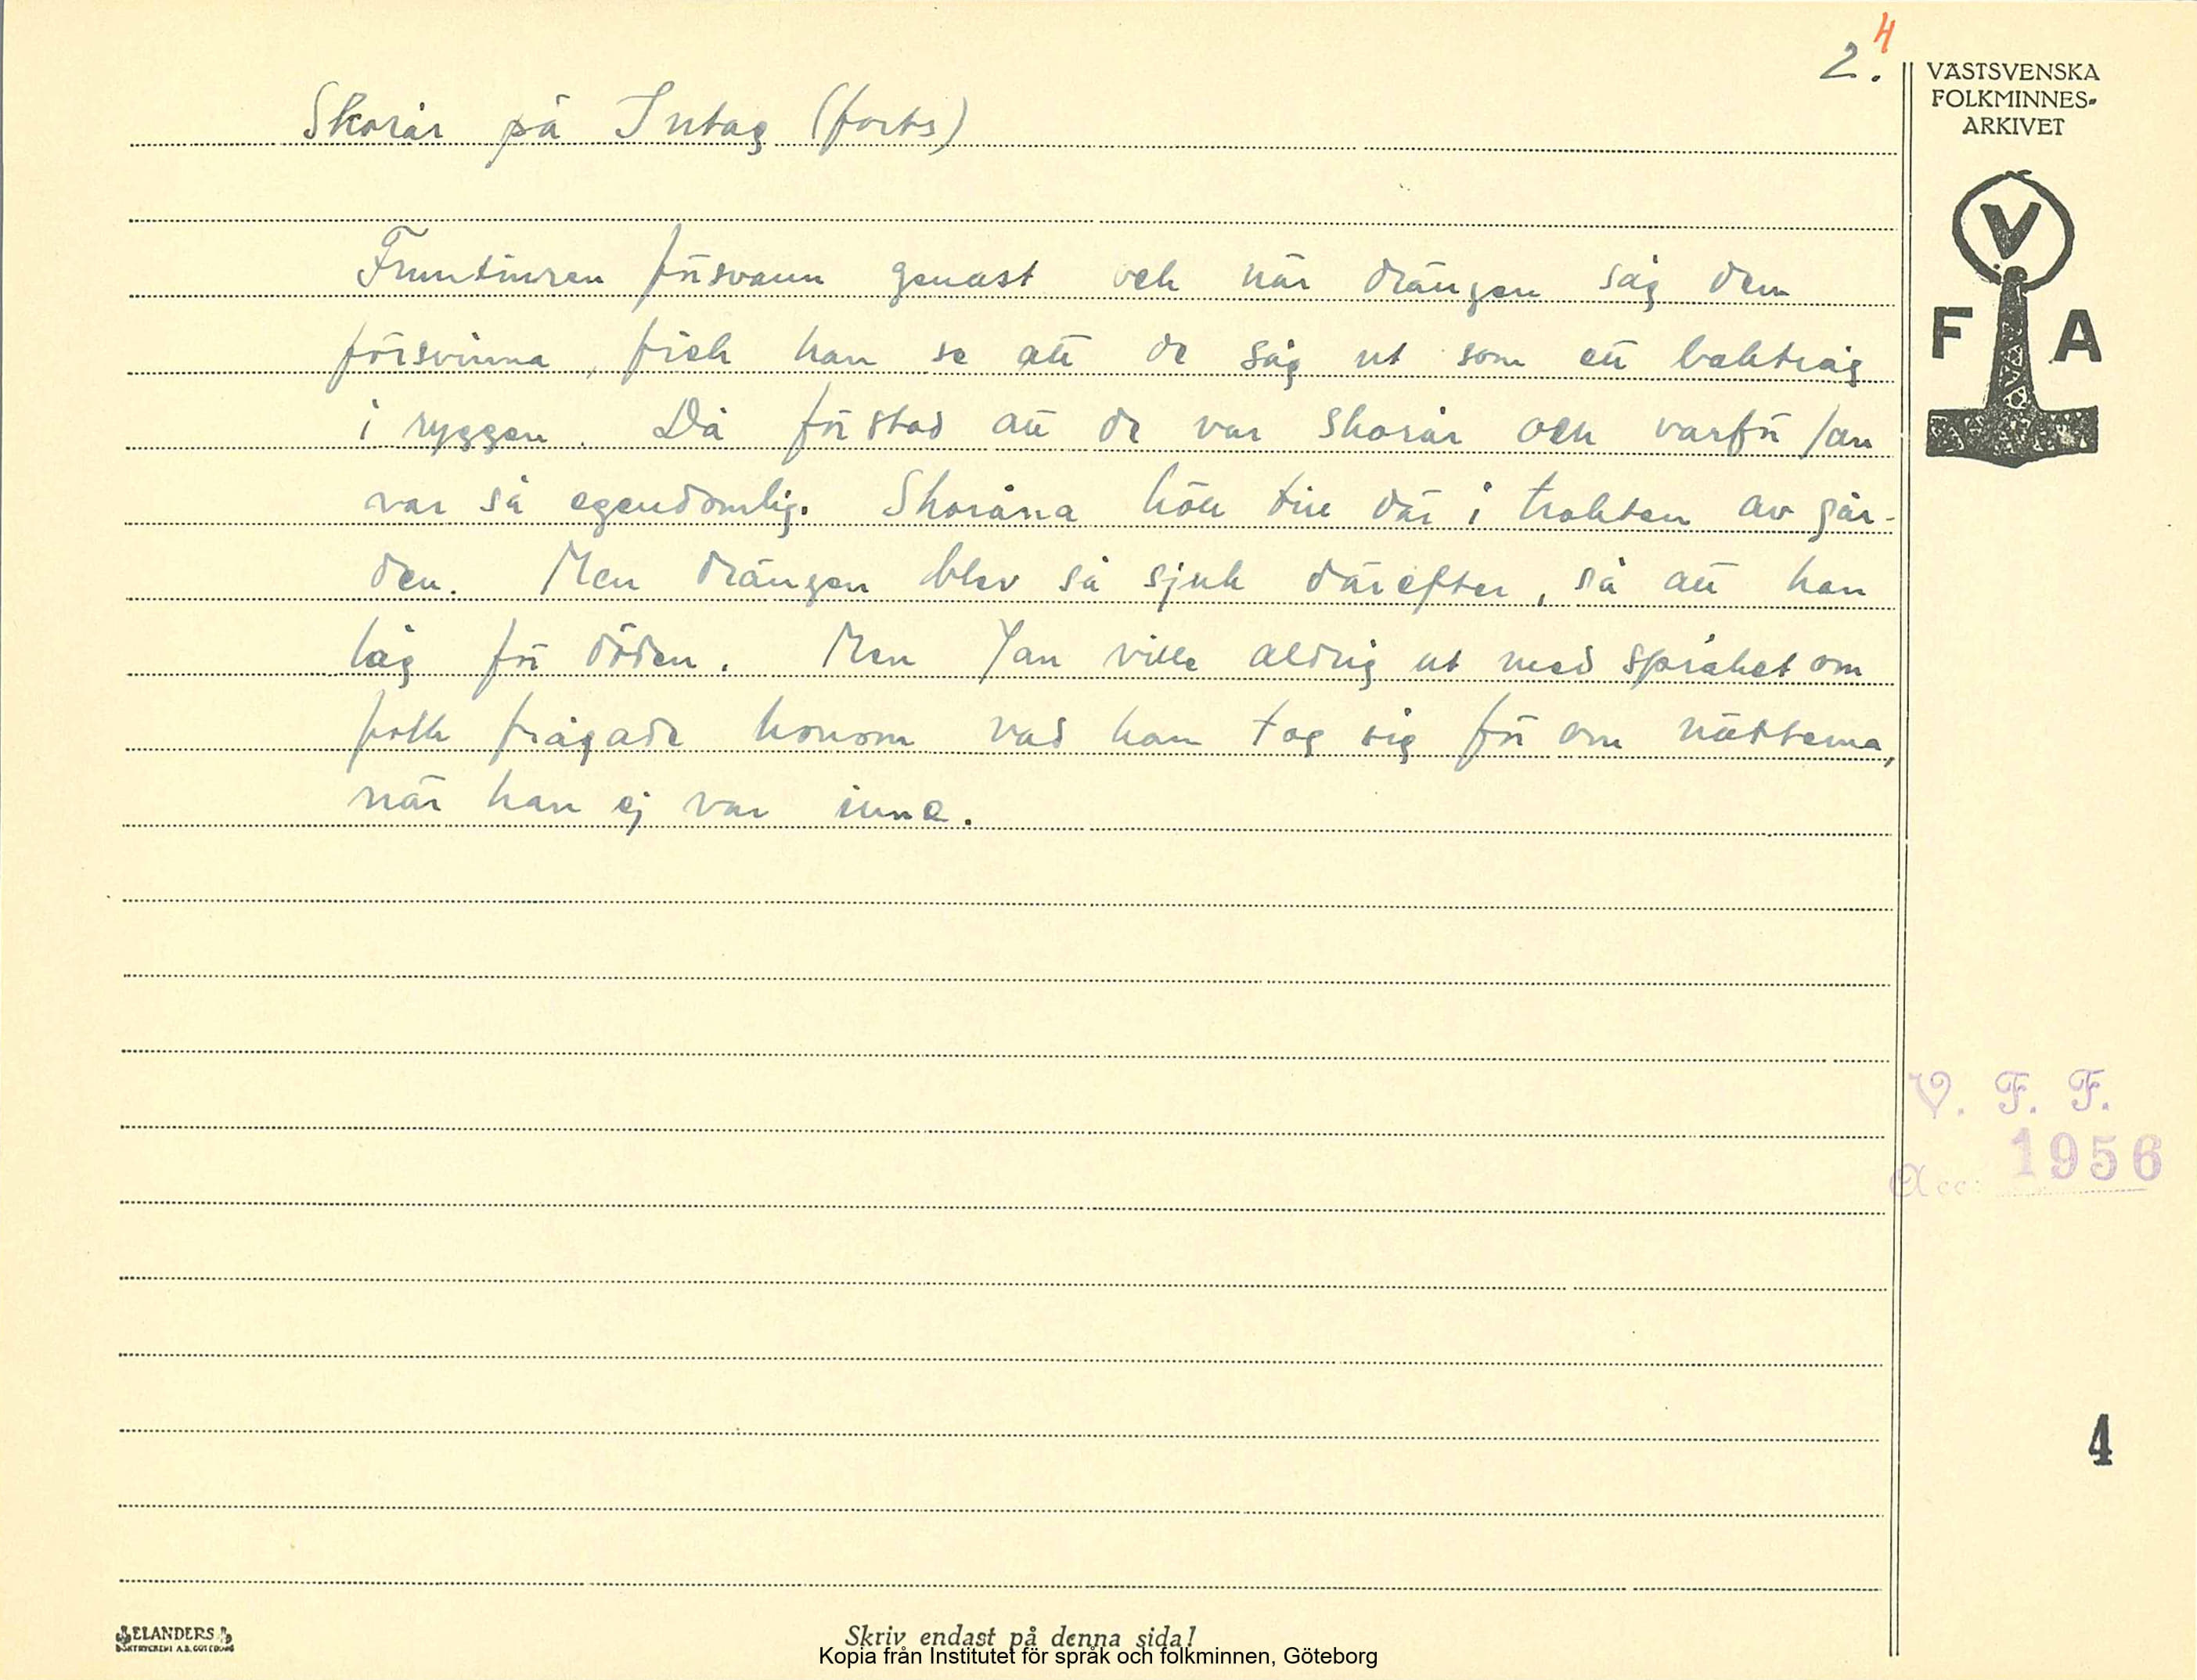 4
2.
VÄSTSVENSKA
FOLKMINNES-
ARKIVET
V
F A
Skorår på Intag (forts)
Fruntimren försvann genast och när drängen såg dem
försvinna, fick han se att de såg ut som ett baktråg
i ryggen. Då förstod att de var skorår och varför Jan
var så egendomlig. Skoråna höll till där i trakten av går-
den. Men drängen blev så sjuk därefter, så att han
låg för döden. Men Jan ville aldrig ut med språket om
folk frågade honom vad han tog sig för om nätterna,
när han ej var inne.
V. F. F.
Acc: 1956
4
ELANDERS
BOKTRYCKERI A.B. GÖTEBORG
Skriv endast på denna sida!
Kopia från Institutet för språk och folkminnen, Göteborg